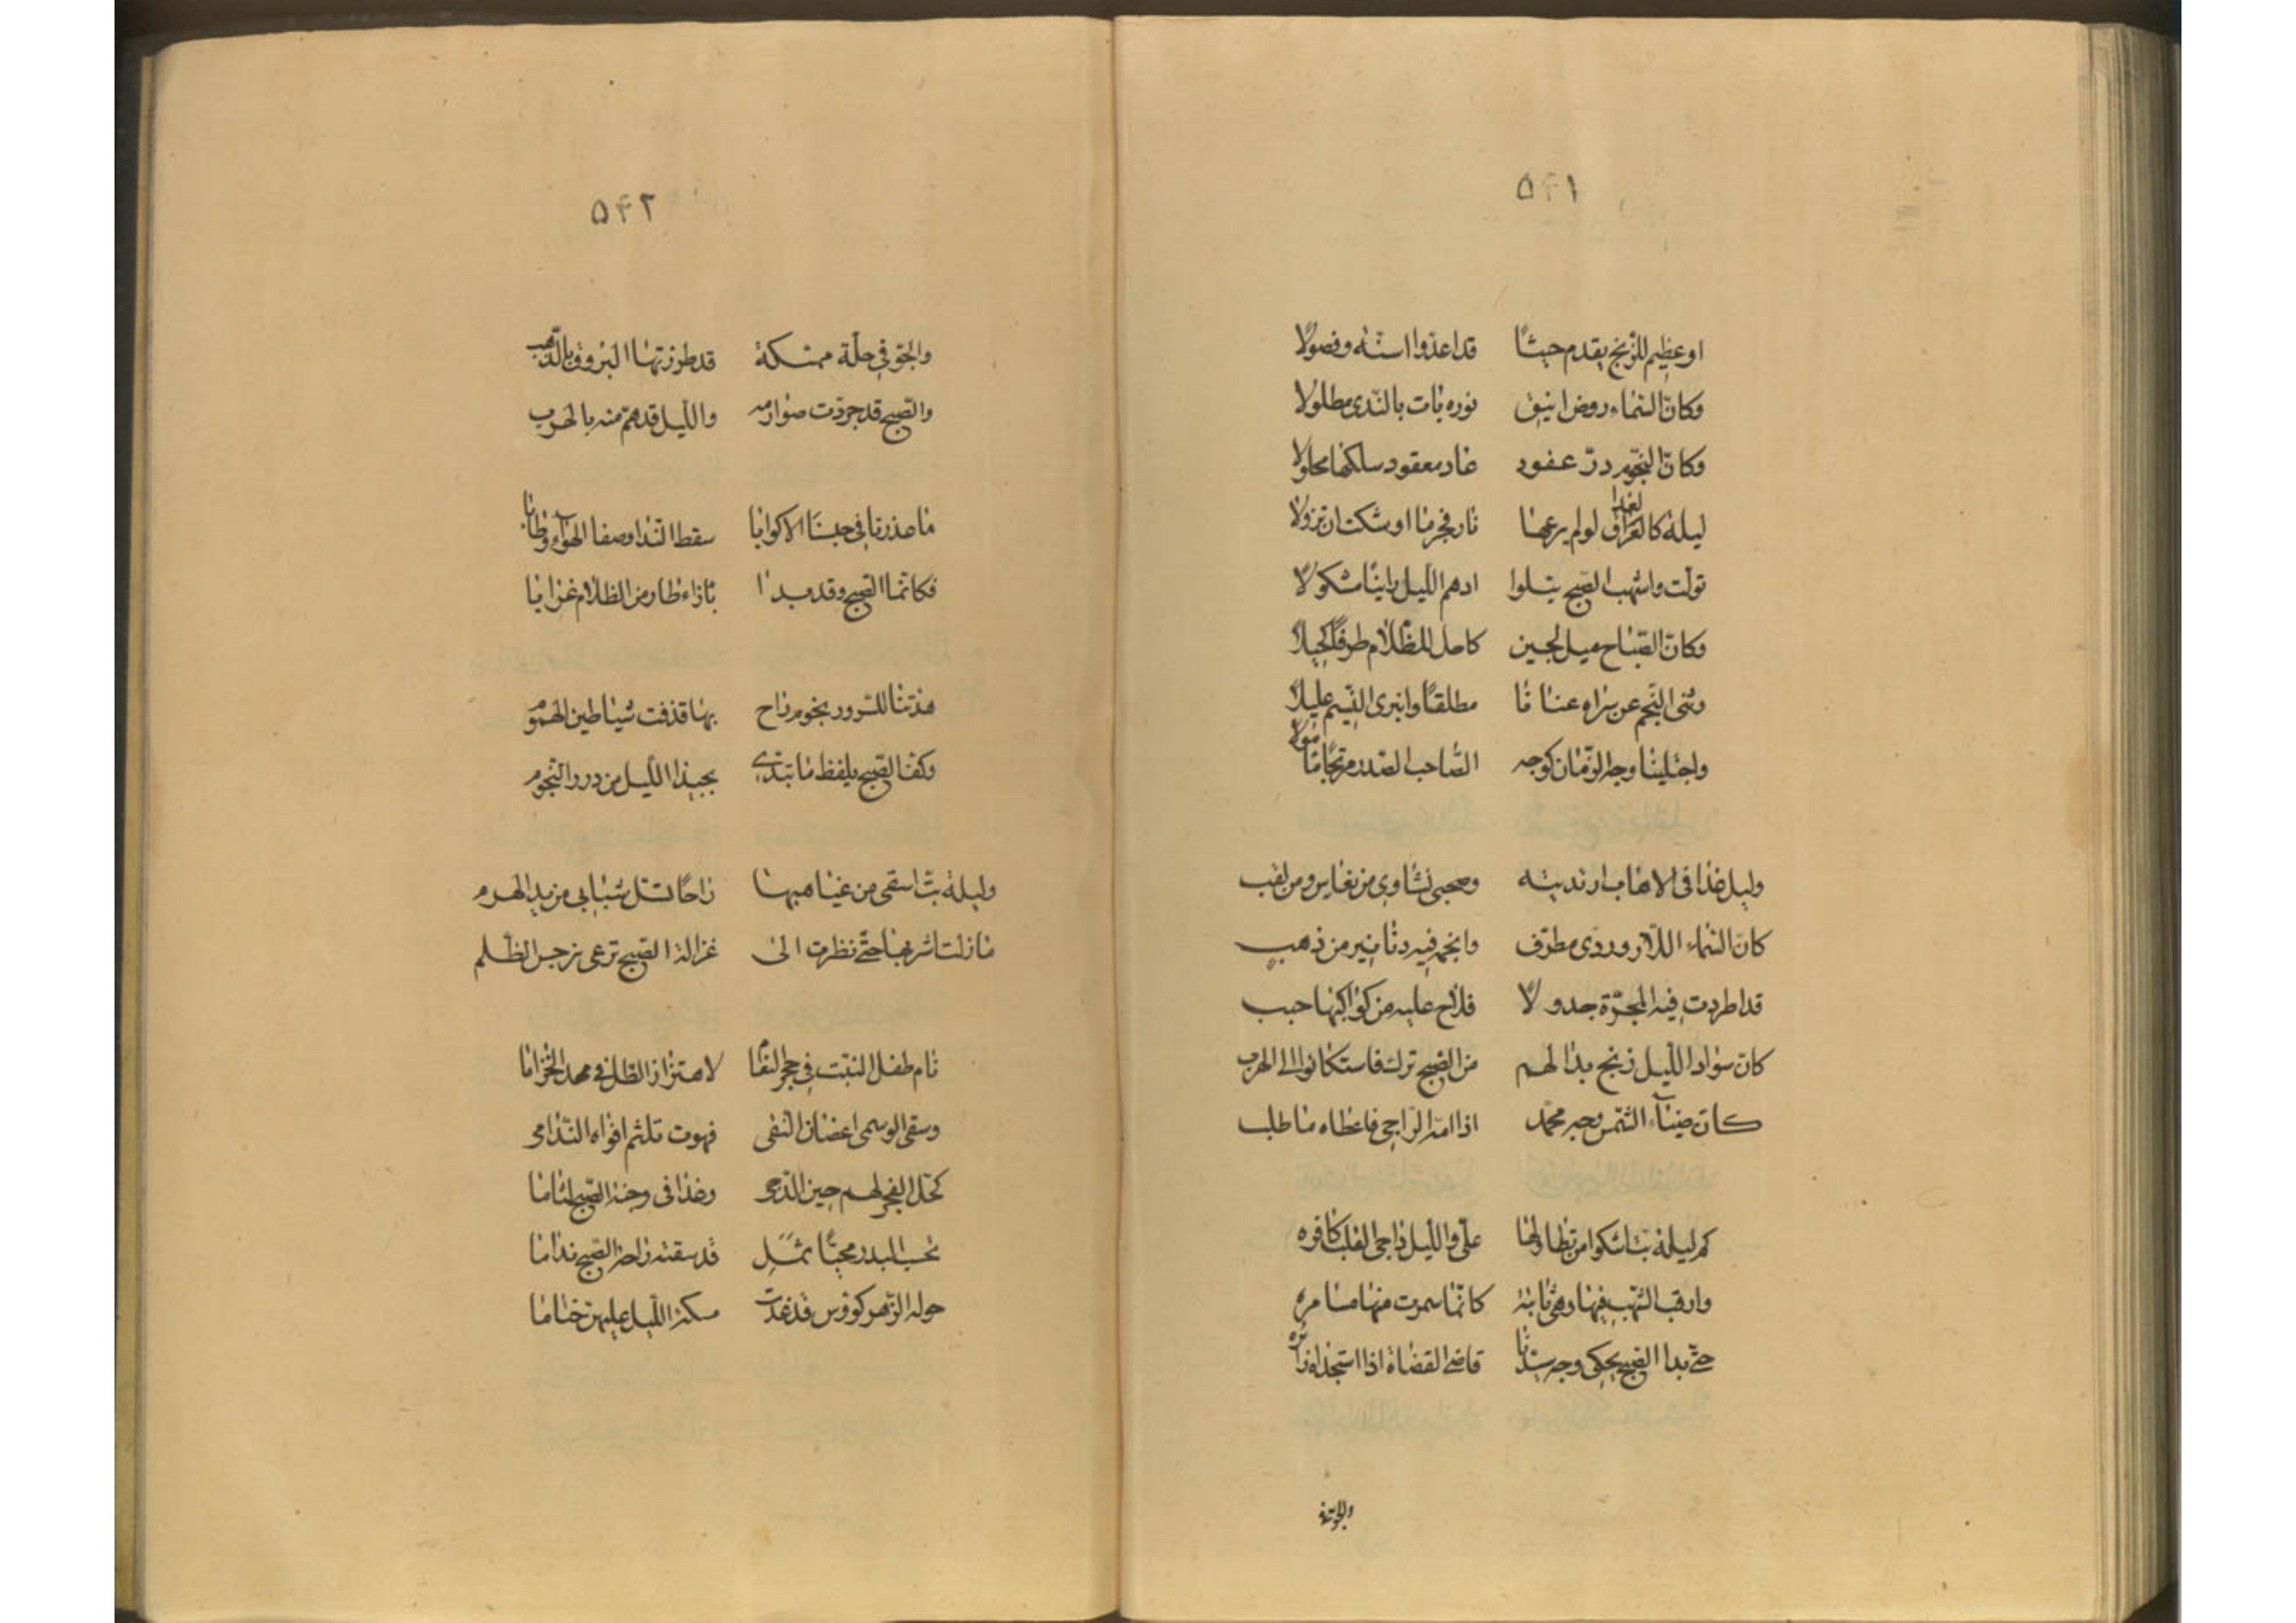 ۵۴۱
او عظيم للزنج يقدم جيشًا قد اعدوا اسنّة ونصولا
وكانّ السّماء روض انيق نوره بات بالنّدى مطلولا
وكانّ النجوم درّ عقود غادر معقود سلكها محلولا
ليلة كالغداف لولم يرعها نار فجر ما اوشكت ان تزولا
تولّت واشهب الصّبح يتلوا ادهم اللّيل مشكولا
وكانّ الصّباح ميل لجين كاحل للظّلام طرفًا كحيلا
وثنى النّجم عن سراه عنانا مطلقًا وانبرى النّسيم عليلا
واجتلينا وجه الزّمان كوجه الصّاحب الصّدر مرتجا
وليل غدافى الاهاب ارتديته وصحبى نشاوى من نعاس ومن لغب
كانّ السّماء اللّازوردى مطرف وانجمه فيه دنانير من ذهب
قد اطردت فيه المجرّة جدولا فلاح عليه من كواكبها حبب
كان سواد اللّيل زنج بدا لهم من الصّبح ترك فاستكانوا الى الهرب
كانّ ضياء الشّمس وجه محمّد اذا امّه الرّاجى فاعطاه ما طلب
كم ليلة بتّ اشكوا من تطاولها علىّ واللّيل داجى القلب كافره
وارقب الشّهب فيها وهى ثابتة كانّما سمرت منها مسامره
حتّى بدا الصّبح يحكى وجه سيّدنا قاضى القضاة اذا استجداه زائره
۵۴۲
والجوّ فى حلّة ممسّكة قد طرزتها البروق بالذّهب
والصّبح قد جردت صوارمه واللّيل قد همّ منه بالهرب
ما عذرنا فى حبسنا الاكوابا سقط النّدا وصفا الهواء وطابا
فكانّما الصّبح وقد بدا بازاء طار من الظلام غرابا
هدتنا للسّرور نجوم راح بها قذفت شياطين الهموم
وكفّ الصّبح يلقط ما تبدّى بجيد اللّيل من درر النّجوم
وليلة بتّ اسقى من غياهبها راحًا تسل شبابى من يد الهرم
ما زلت اشربها حتّى نظرت الى غزالة الصّبح ترعى نرجس الظّلم
نام طفل النبت فى حجر النّقا لاهتزاز الظّل فى مهد الخزاما
وسقى الوسمى اغصان النّقى فهوت تلثم افواه النّدامى
كحّل الفجر لهم جفن الدّجى وغدا فى وجنة الصّبح لثاما
تحسب البدر محيّا ثمل قد سقته راحة الصّبح مداما
حوله الزّهر كووس قد غدت مسكة اللّيل عليهن ختاما